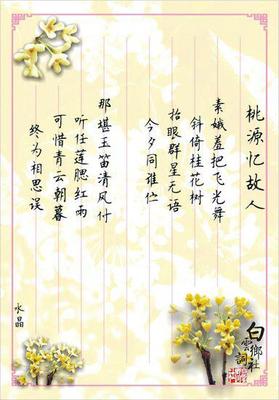 桃源忆故人
素娥羞把飞光舞
斜倚桂花树
抬眼群星无语
今夕同谁伫
那堪玉笛清风付
听任莲腮红雨
可惜青云朝暮
终为相思误
水晶
白雲鄉詞社